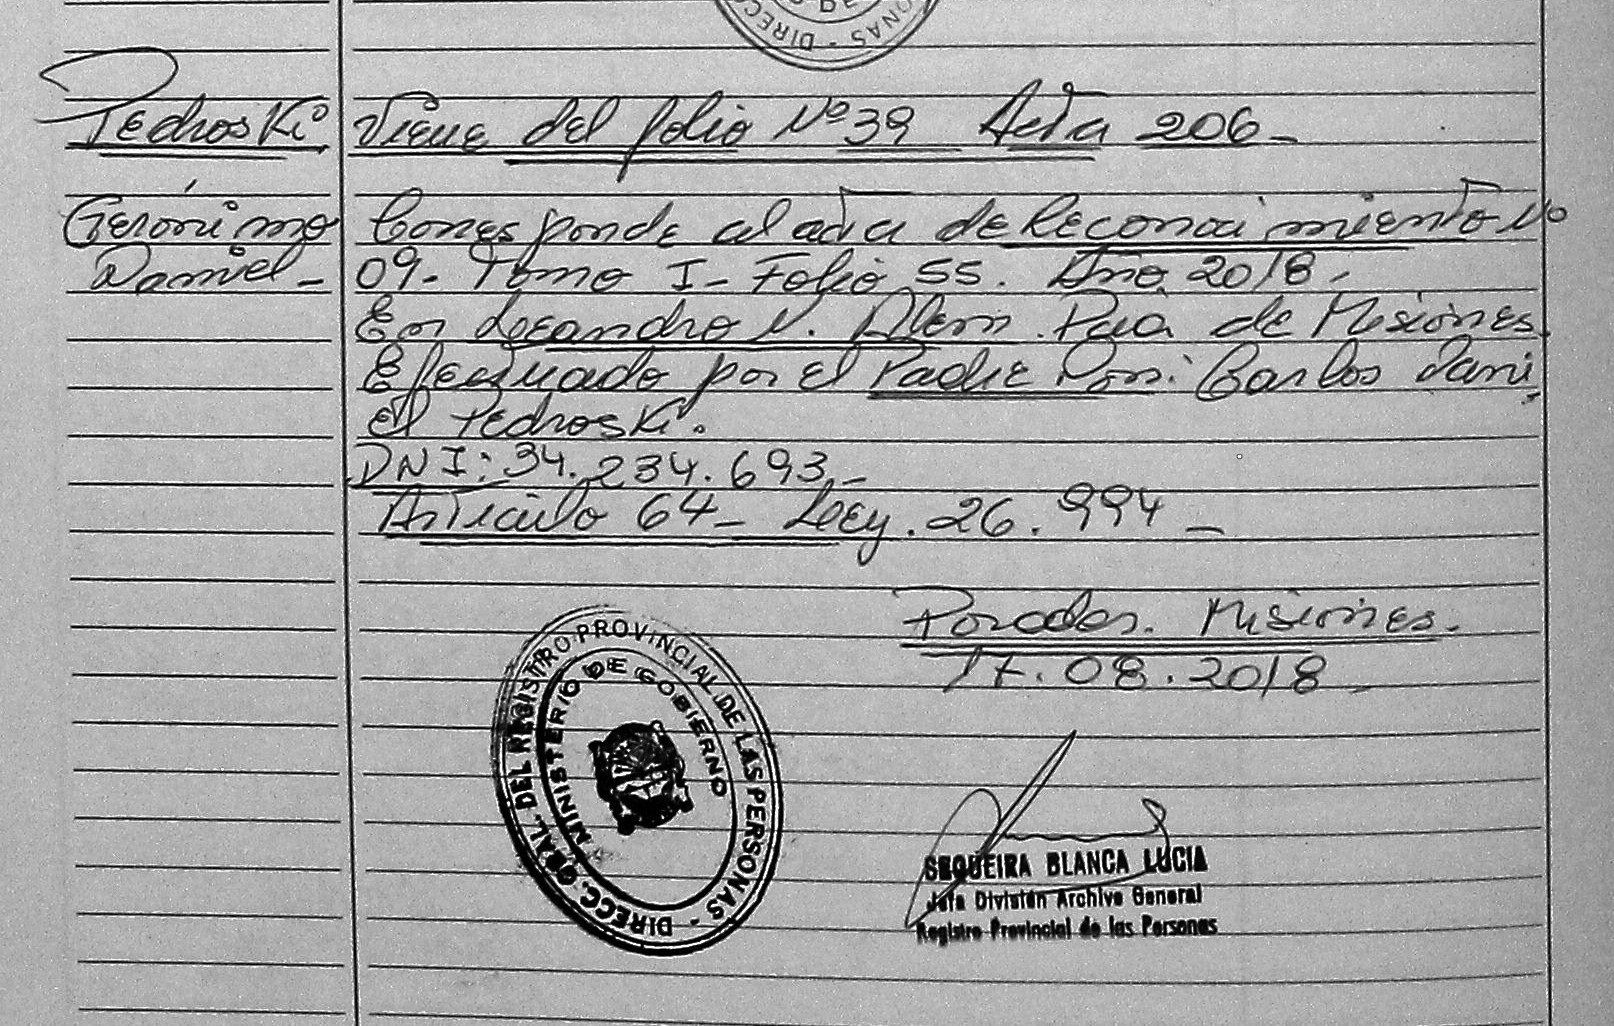 DIRECC
ONAS - DIREC
Pedroski
Viene del folio Nº 39 Acta 206 -
Gerónimo
Corresponde al acta de Reconocimiento Nº
Daniel -
09 - Tomo I - Folio 55. Año 2018 -
En Leandro N. Alem. Pcia de Misiones.
Efectuado por el Padre Don: Carlos Dani
el Pedroski.
DNI: 34.234.693 -
Articulo 64 - Ley. 26.994 -
Posadas. Misiones.
17.08.2018 -
DIRECC. GRAL. DEL REGISTRO PROVINCIAL DE LAS PERSONAS -
MINISTERIO DE GOBIERNO
SEQUEIRA BLANCA LUCIA
Jefa División Archivo General
Registro Provincial de las Personas